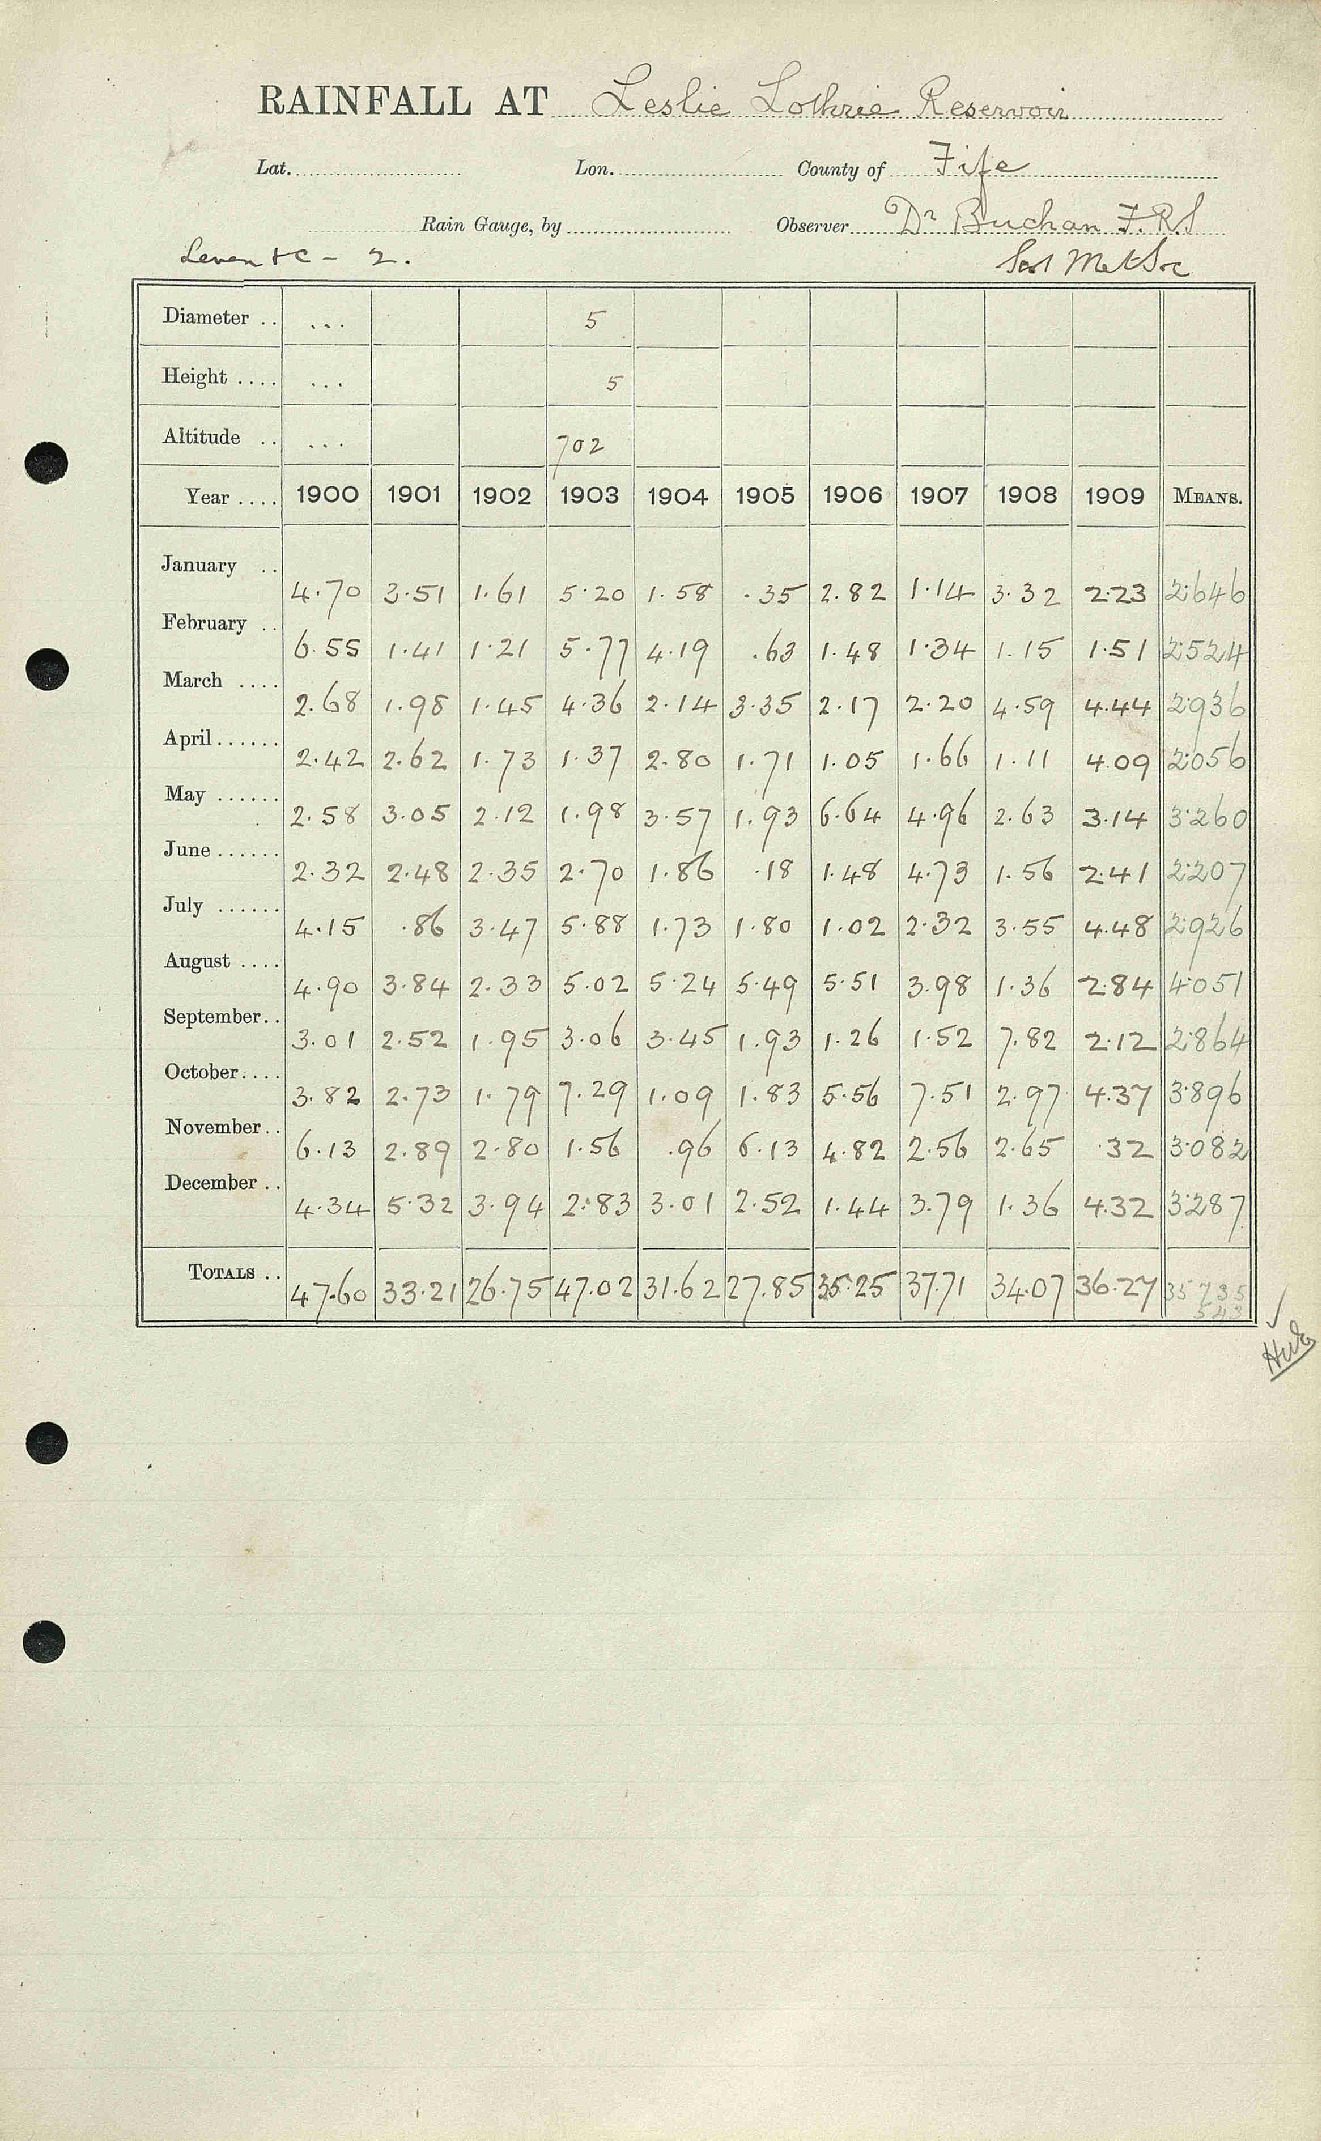 RAINFALL AT Leslie Lothrie Reservoir
Lat. Lon. County of Fife
Rain Gauge, by Observer Dr Buchan F.R.S
Leven &c - 2. Scot Met Soc
Diameter .. ... 5
Height .... ... 5
Altitude .. ... 702
Year .... 1900 1901 1902 1903 1904 1905 1906 1907 1908 1909 MEANS.
January .. 4.70 3.51 1.61 5.20 1.58 .35 2.82 1.14 3.32 2.23 2.646
February .. 6.55 1.41 1.21 5.77 4.19 .63 1.48 1.34 1.15 1.51 2.524
March .... 2.68 1.98 1.45 4.36 2.14 3.35 2.17 2.20 4.59 4.44 2.936
April...... 2.42 2.62 1.73 1.37 2.80 1.71 1.05 1.66 1.11 4.09 2.056
May ...... 2.58 3.05 2.12 1.98 3.57 1.93 6.64 4.96 2.63 3.14 3.260
June...... 2.32 2.48 2.35 2.70 1.86 .18 1.48 4.73 1.56 2.41 2.207
July ...... 4.15 .86 3.47 5.88 1.73 1.80 1.02 2.32 3.55 4.48 2.926
August .... 4.90 3.84 2.33 5.02 5.24 5.49 5.51 3.98 1.36 2.84 4.051
September.. 3.01 2.52 1.95 3.06 3.45 1.93 1.26 1.52 7.82 2.12 2.864
October.... 3.82 2.73 1.79 7.29 1.09 1.83 5.56 7.51 2.97 4.37 3.896
November.. 6.13 2.89 2.80 1.56 .96 6.13 4.82 2.56 2.65 .32 3.082
December .. 4.34 5.32 3.94 2.83 3.01 2.52 1.44 3.79 1.36 4.32 3.287
TOTALS .. 47.60 33.21 26.75 47.02 31.62 27.85 35.25 37.71 34.07 36.27 35 735
543